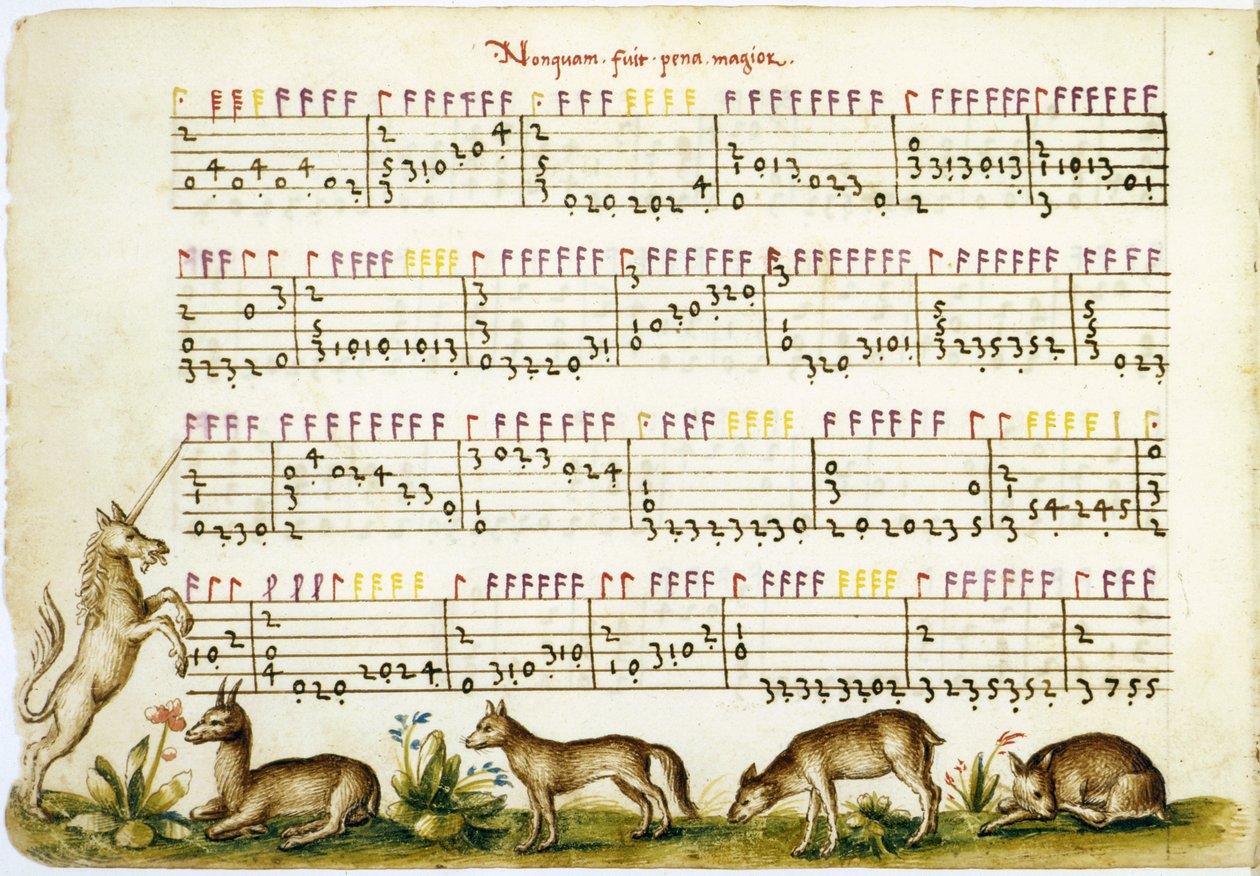 ·Nonquam· fuit· pena· magior·